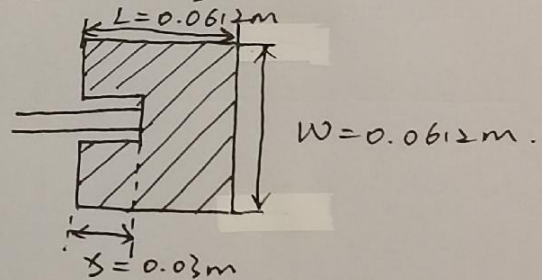 L=0.0612m
W=0.0612m.
x=0.03m